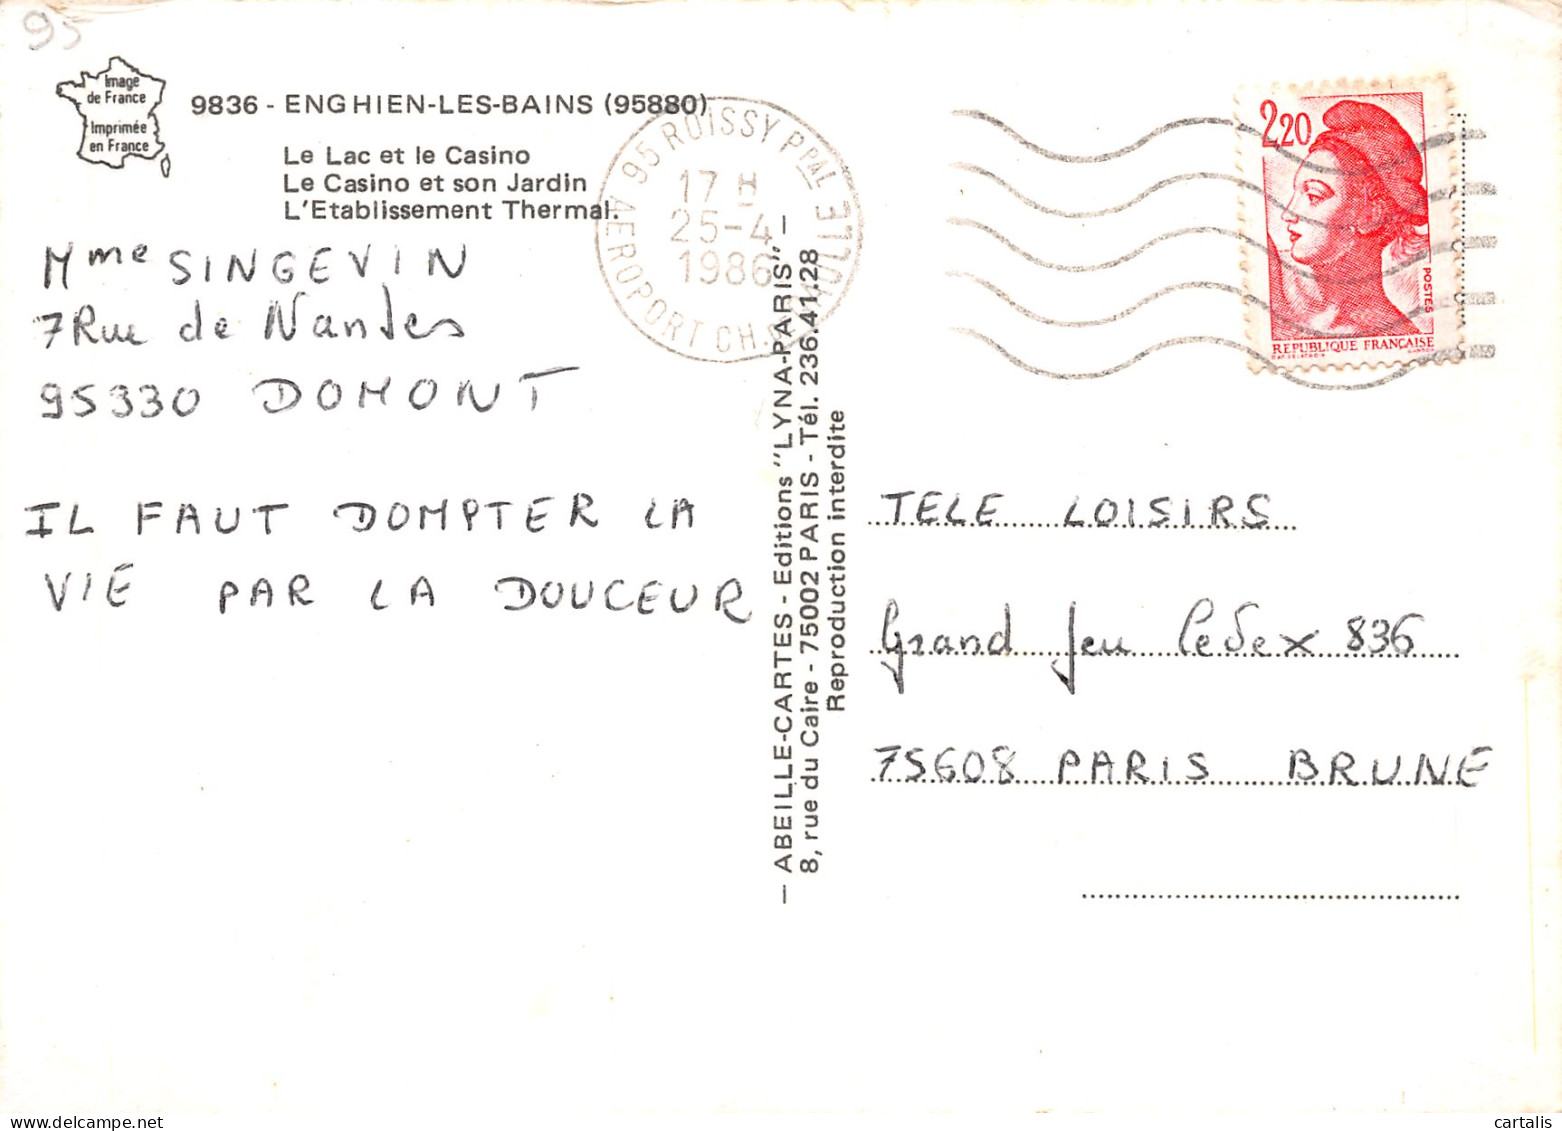 95
Image
de France
Imprimée
en France
9836 - ENGHIEN-LES-BAINS (95880)
Le Lac et le Casino
Le Casino et son Jardin
L'Etablissement Thermal.
Mme SINGEVIN
7 Rue de Nantes
95330 DOMONT
IL FAUT DOMPTER LA
VIE PAR LA DOUCEUR
95 ROISSY PPAL
AEROPORT CH. GAULLE
17 H
25-4-
1986
— ABEILLE-CARTES - Editions "LYNA-PARIS" —
8, rue du Caire - 75002 PARIS - Tél. 236.41.28
Reproduction interdite
2,20
POSTES
REPUBLIQUE FRANÇAISE
TELE LOISIRS
Grand Jeu Cedex 836
75608 PARIS BRUNE
cartalis